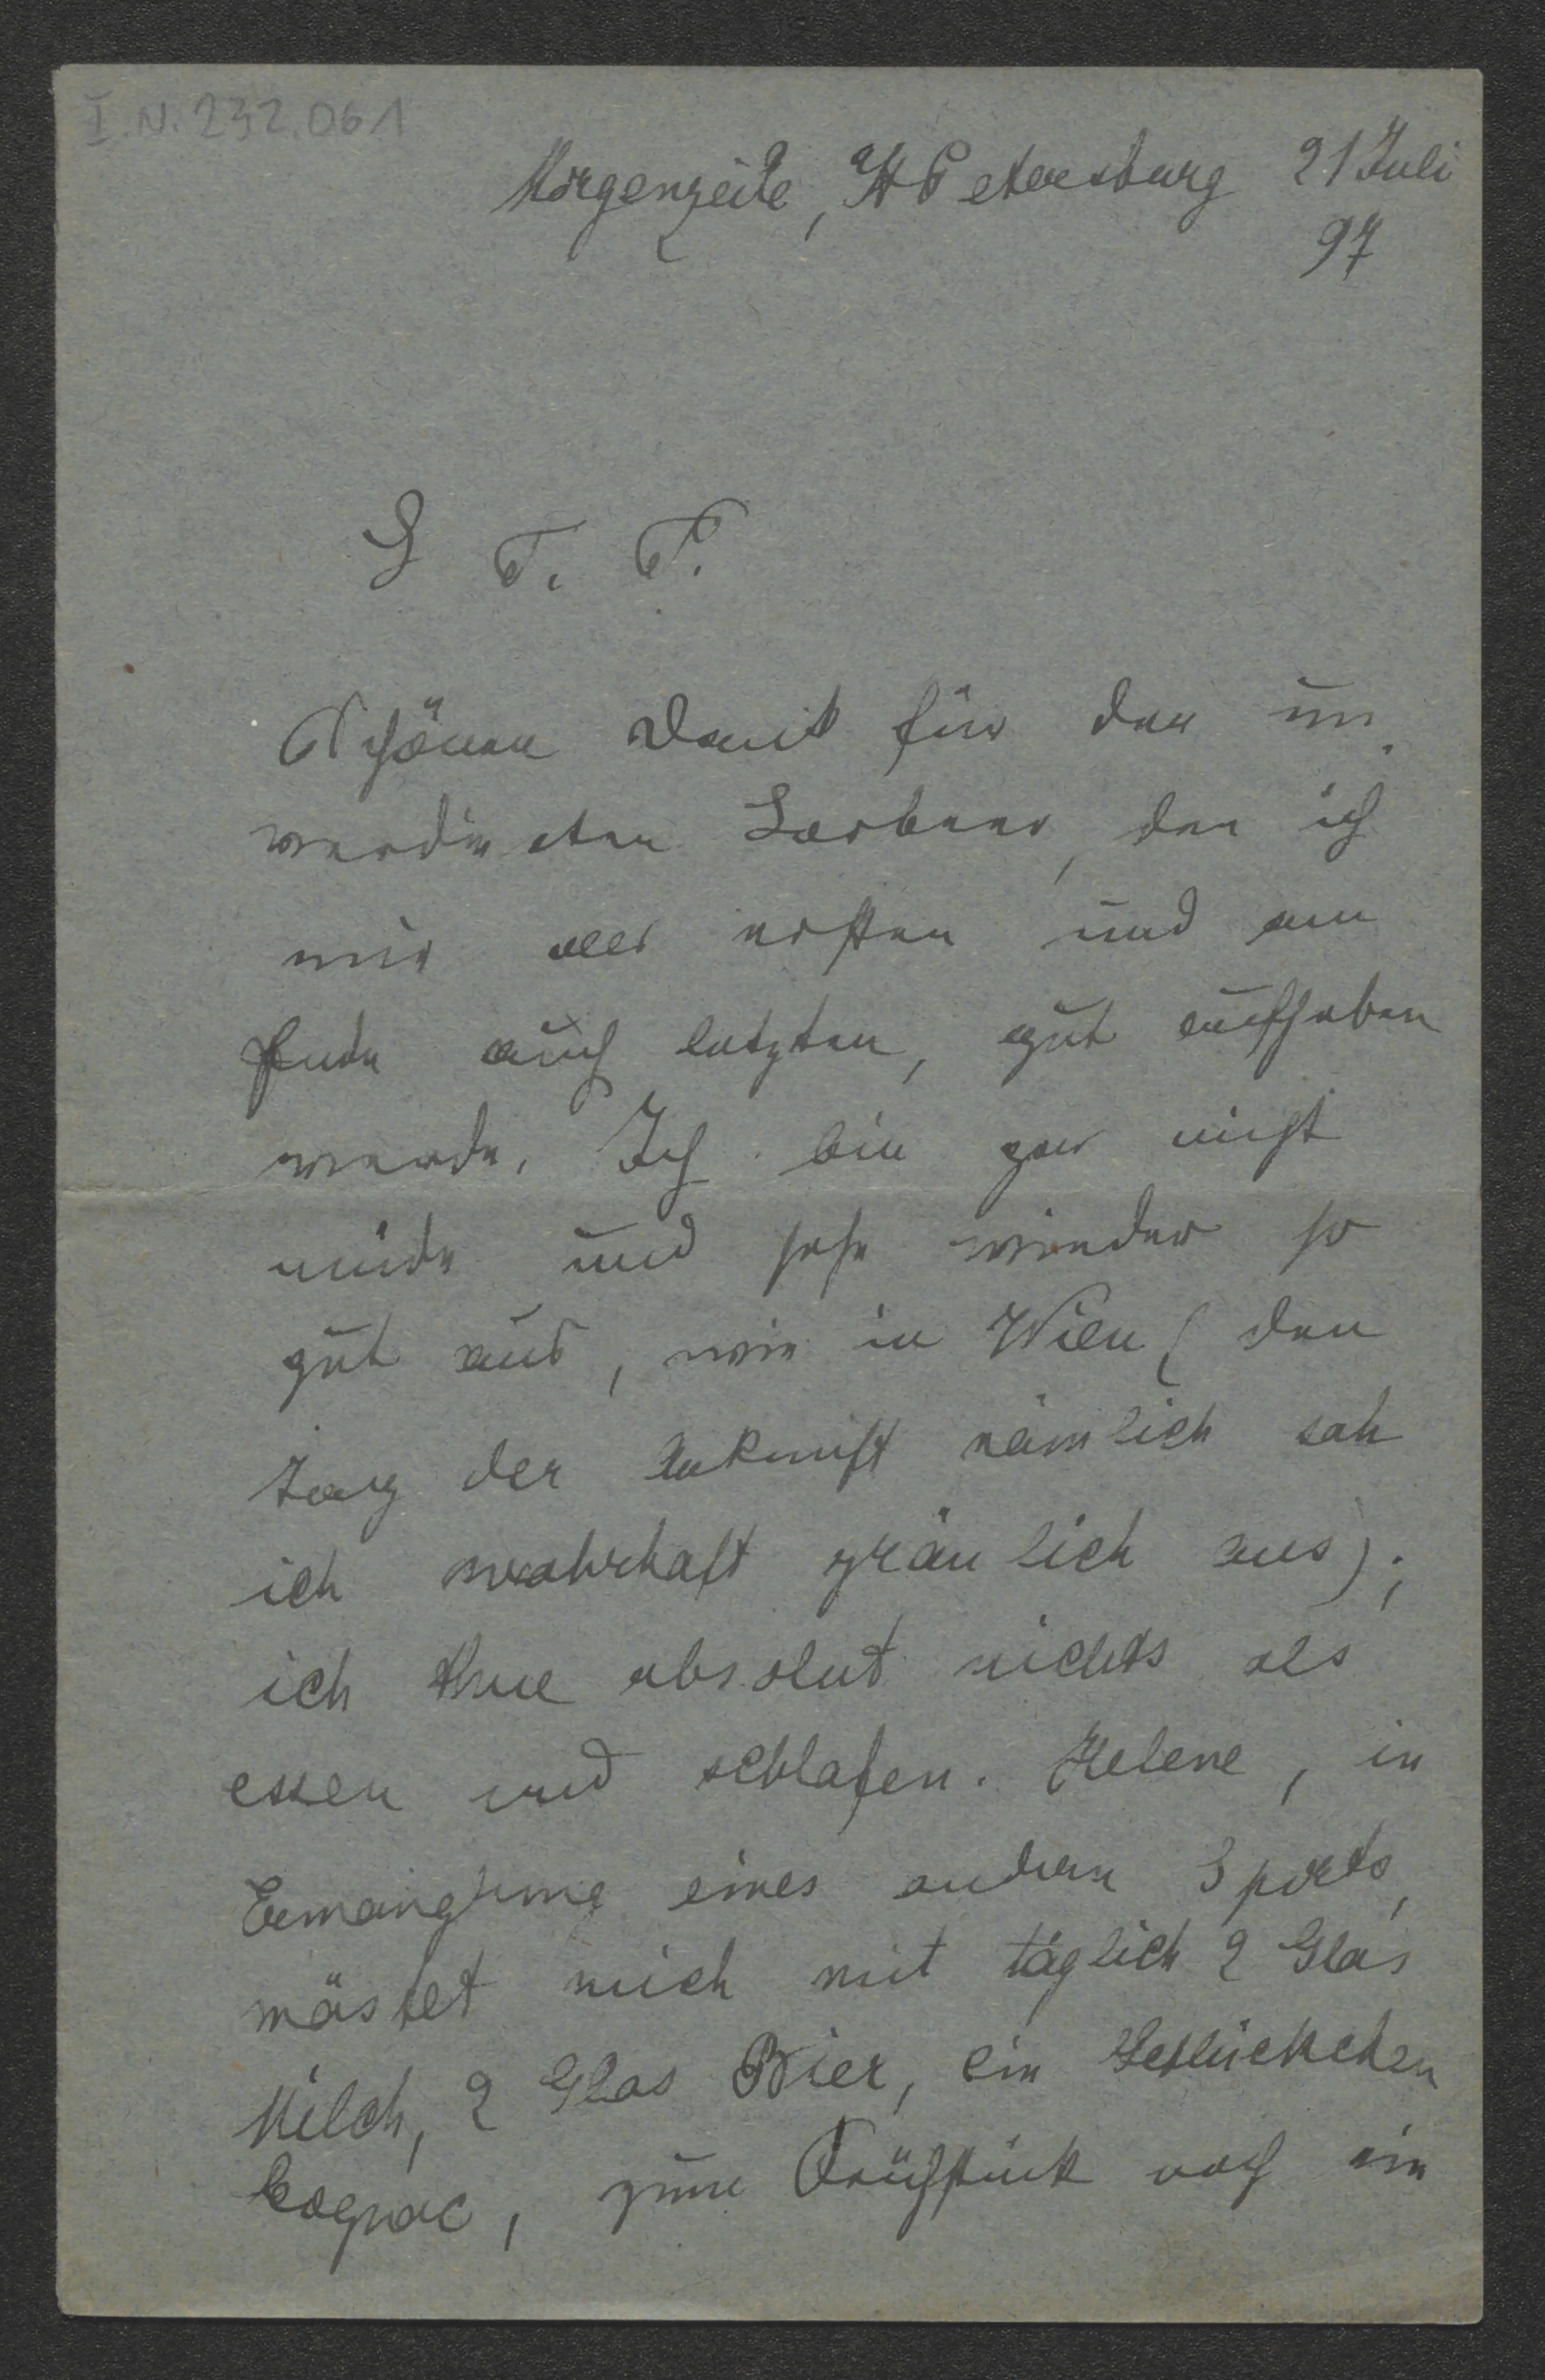 I.N. 232.061
Morgenzeile, St Petersburg 21 Juli
97
L T. F.
Schönen Dank für den un
verdienten Lorbeer, den ich
mir als ersten und am
Ende auch letzten, gut aufheben
werde. Ich bin gar nicht
müde und sehe wieder so
gut aus, wie in Wien (den
Tag der Ankunft nämlich sah
ich wahrhaft gräulich aus);
ich thue absolut nichts als
essen und schlafen. Helene, in
Ermanglung eines andern Sports,
mästet mich mit täglich 2 Glas
Milch, 2 Glas Bier, ein Schlückchen
Cognac, zum Frühstück noch ein